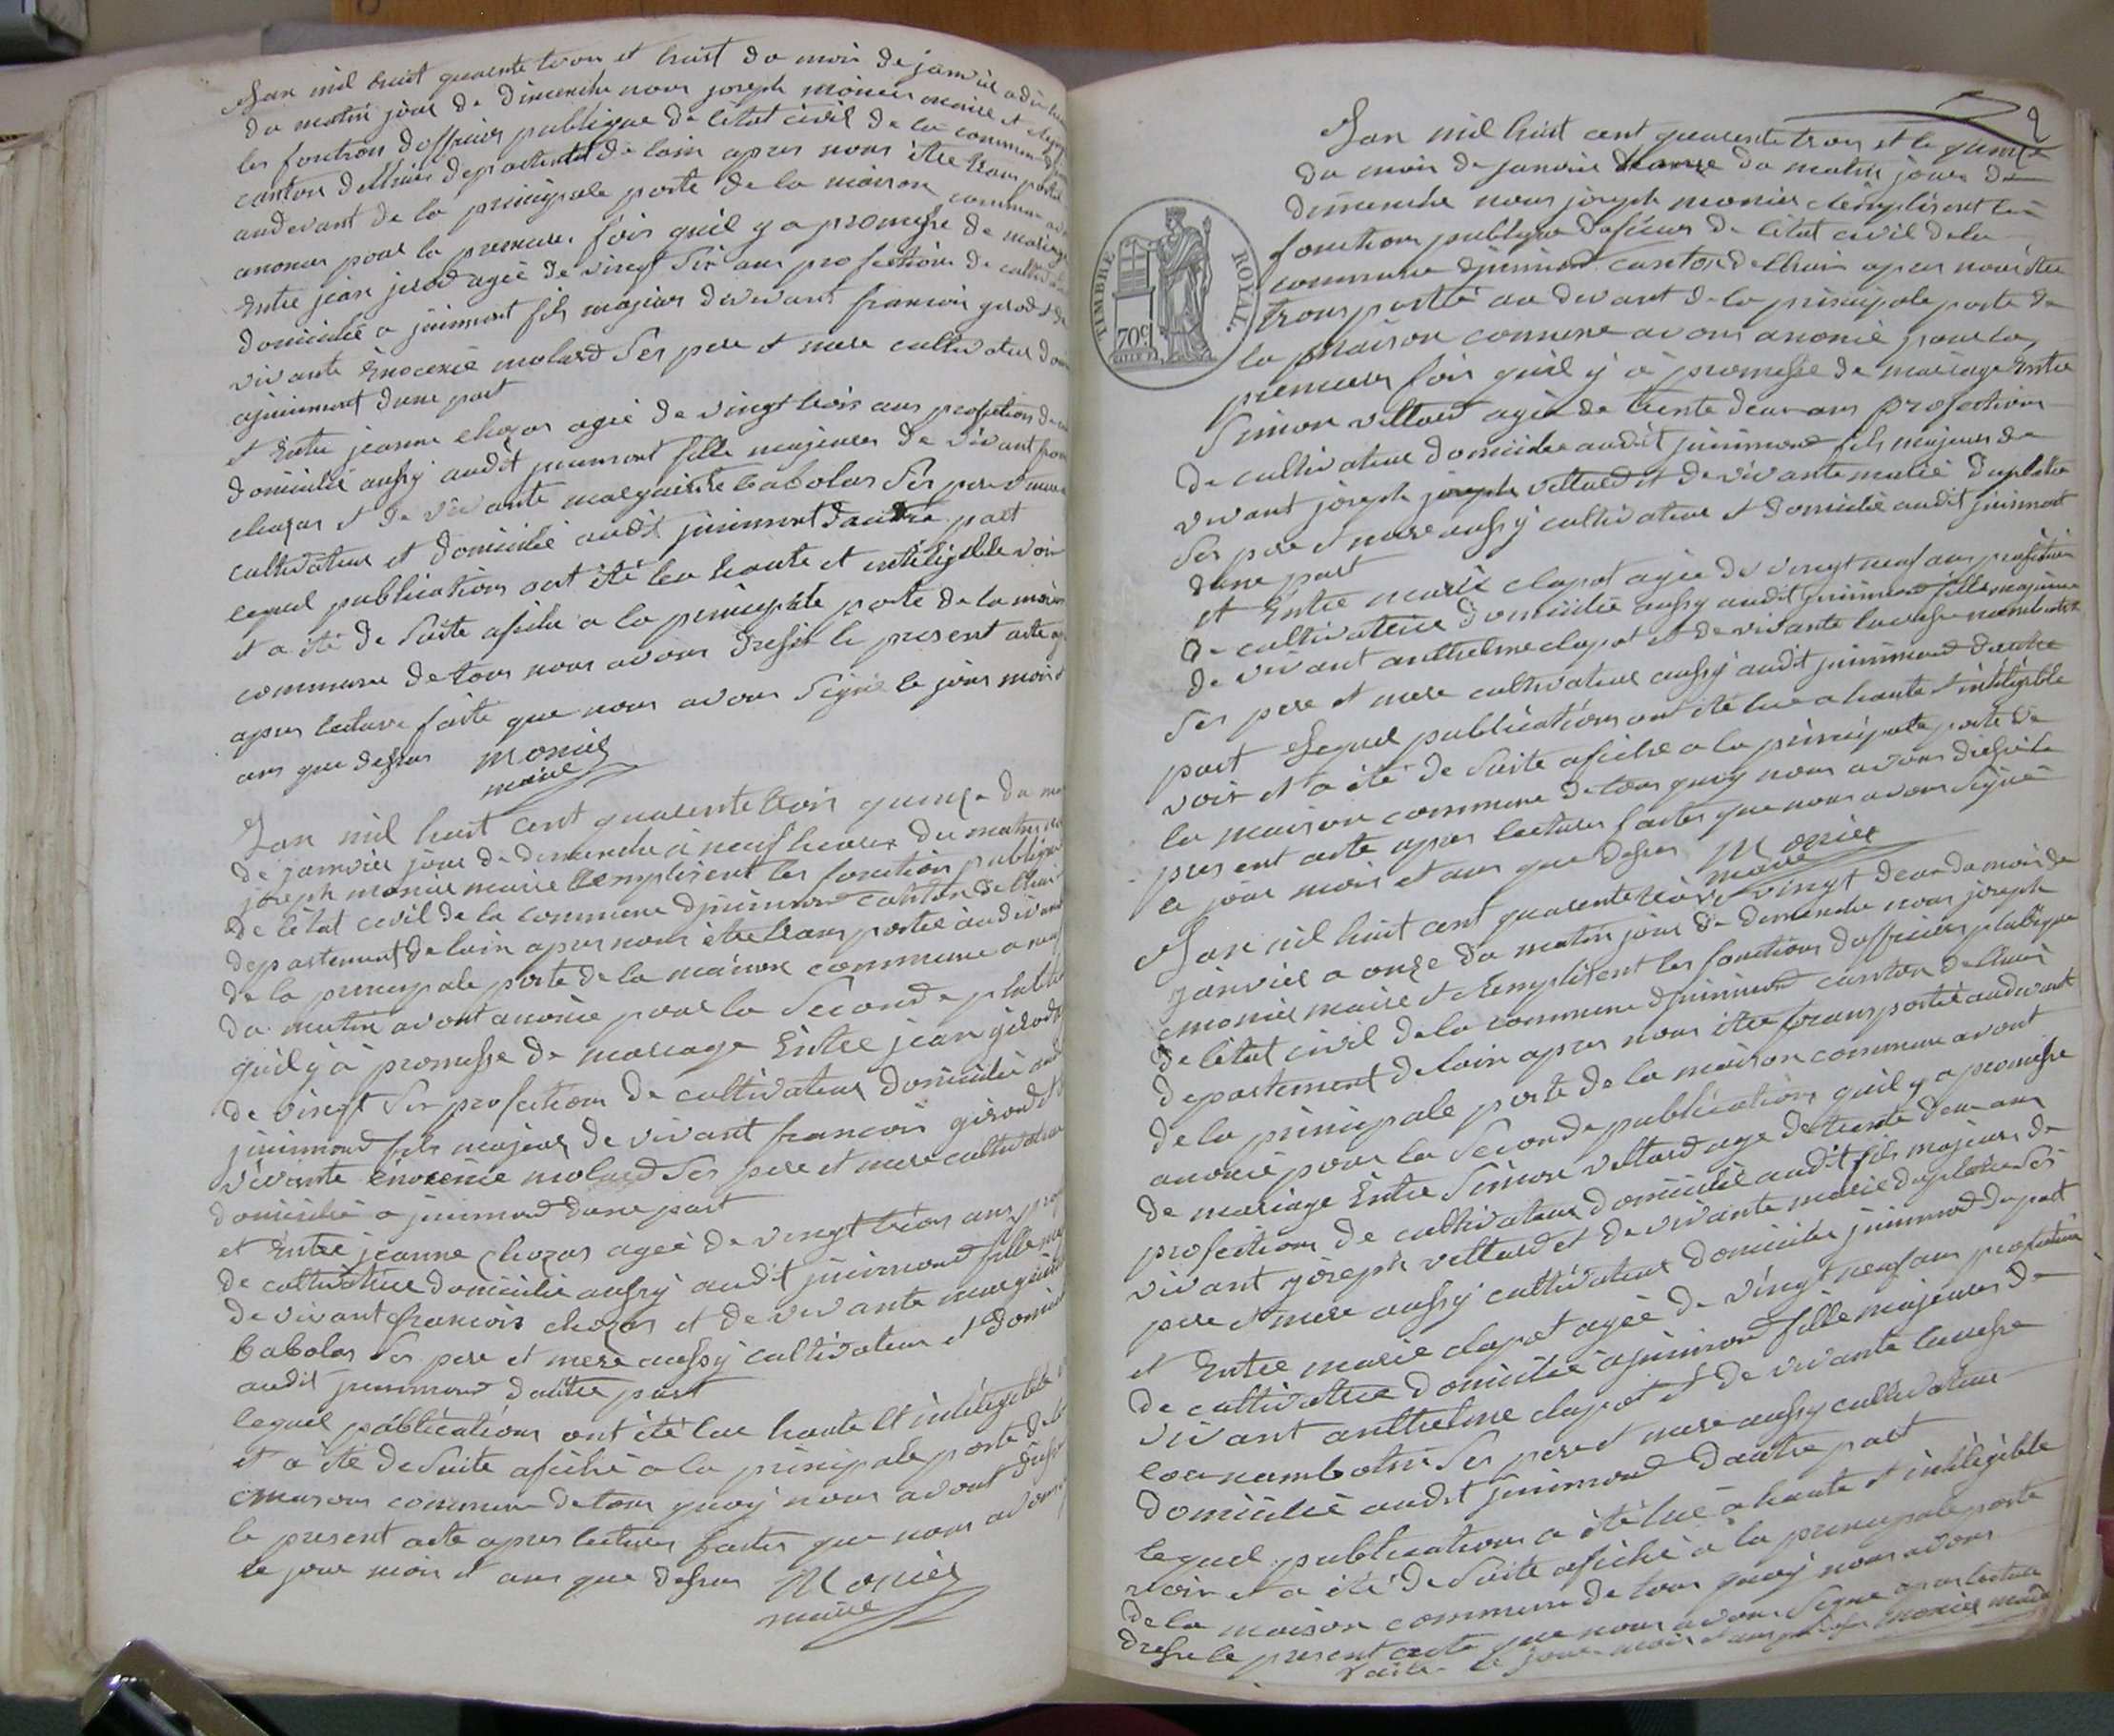 Lan mil huit quarente trois et huit du mois de janvier a dix
du matin jour de dimenche nous joseph monier maire et
les fonction dofficier publique de létat civil de la commune
canton de lhuis departement de lain apres nous être trans porté
audevant de la principale porte de la maison commune
anoncer pour la premiere fois quil y a promesse de mariage
Entre jean jirod agée de vingt six ans profection de
domicilié a jinimont fils majeur de vivant francois girod et de
vivante Enocencé molard Ses pere et mere cultivateur
ajinimont dune part
et Entre jeanne chozas agée de vingt trois ans profection de
domicilié aussy audit jinimont fille majeure de vivant
chozas et de vivante marguerite babolas Ses pere et mere
cultivateur et domicilié audit jinimont dautre part
lequel publication ont été lue haute et intéligible voix
et a été de Suite afiché a la principale porte de la maison
commune de tous nous avons dressé le present acte
apres lecture faite que nous avons Signé le jour mois et
ans que dessus Monier
maire
Lan mil huit cent quarente trois quinze du
de janvier jour de dimenche à neuf heures du matin
joseph monier maire Remplisent les fonction publique
de létat civil de la commune djinimont canton de lhuis
departement de lain apres nous être trans portée audevant
de la principale porte de la maison commune a neuf
du matin avont anoncé pour la Seconde
quil y à promesse de mariage Entre jean girod
de vingt Six profection de cultivateur domicilié
jinimond fils majeur de vivant francois girod et
vivante énocencé molard Ses pere et mere cultivateur
domicilié a jinimond dune part
et Entre jeanne chozas agée de vingt trois ans
de cultivatrice domicilié aussy audit jinimond fille
de vivant francois chozas et de vivante marguerite
babolas Ses pere et mere aussy cultivateur et
audit jinimond dautre part
lequel publications ont été lue haute et intéligible
et a été de Suite afiché a la principale porte de la
maison commune de tous quoy nous avont
le present acte apres lecture faites que nous avons
le jour mois et ans que dessus Monier
maire
2
Lan mil huit cent quarente trois et le quinze
du mois de janvier du matin jour de
dimenche nous joseph monier Remplisent les
fonction publique doficier de létat civil de la
commune djinimond canton de lhuis apres nous être
trans portté au devant de la principale porte de
la maison commune avons anoncé pour la
premiere fois quil y à promesse de mariage Entre
Simon vettard agée de trente deux ans profection
de cultivateur domicilié audit jinimond fils majeur de
vivant joseph joseph vettard et de vivante marie duplatre
Ses pere et mere aussy cultivateur et domicilié audit jinimont
dune part
et Entre marie clapot agée de vingt neuf ans profection
de cultivatrice domicilié aussy audit jinimond fille majeure
de vivant anthelme clapot et de vivante
Ses pere et mere cultivateur aussy audit jinimond dautre
part Lequel publication ont été lue a haute et intéligible
voix et a été de Suite afiché a la principale porte de
la maison commune de tous quoy nous avons dressé le
present acte apres lecture faites que nous avons Signé
le jour mois et ans que dessus Monier
maire
Lan mil huit cent quarente trois vingt deux du mois de
janvier a onze du matin jour de dimenche nous joseph
monier maire et Remplisent les fonctions dofficier publique
de létat civil de la commune djinimond canton de lhuis
departement de lain apres nous être transportée audevant
de la principale porte de la maison commune avont
anoncé pour la Seconde publication quil y a promesse
de mariage Entre Simon vettard age de trente deux ans
profection de cultivateur domicilié audit fils majeur de
vivant joseph vettard et de vivante marie duplatre Ses
pere et mere aussy cultivateur domicilié jinimond dupart
et Entre marie clapot agée de vingt neuf ans profection
de cultivatrice domicilié ajinimond fille majeure de
vivant anthelme clapot et de vivante
Ses pere et mere aussy cultivateur
domicilié audit jinimond dautre part
lequel publication a été lue a haute et intéligible
voix et a été de Suite afiché a la principale porte
de la maison commune de tous quoy nous avons
dresse le present acte que nous avons Signé apres lecture
faite le jour mois et ans que dessus monier maire
TIMBRE ROYAL
70c